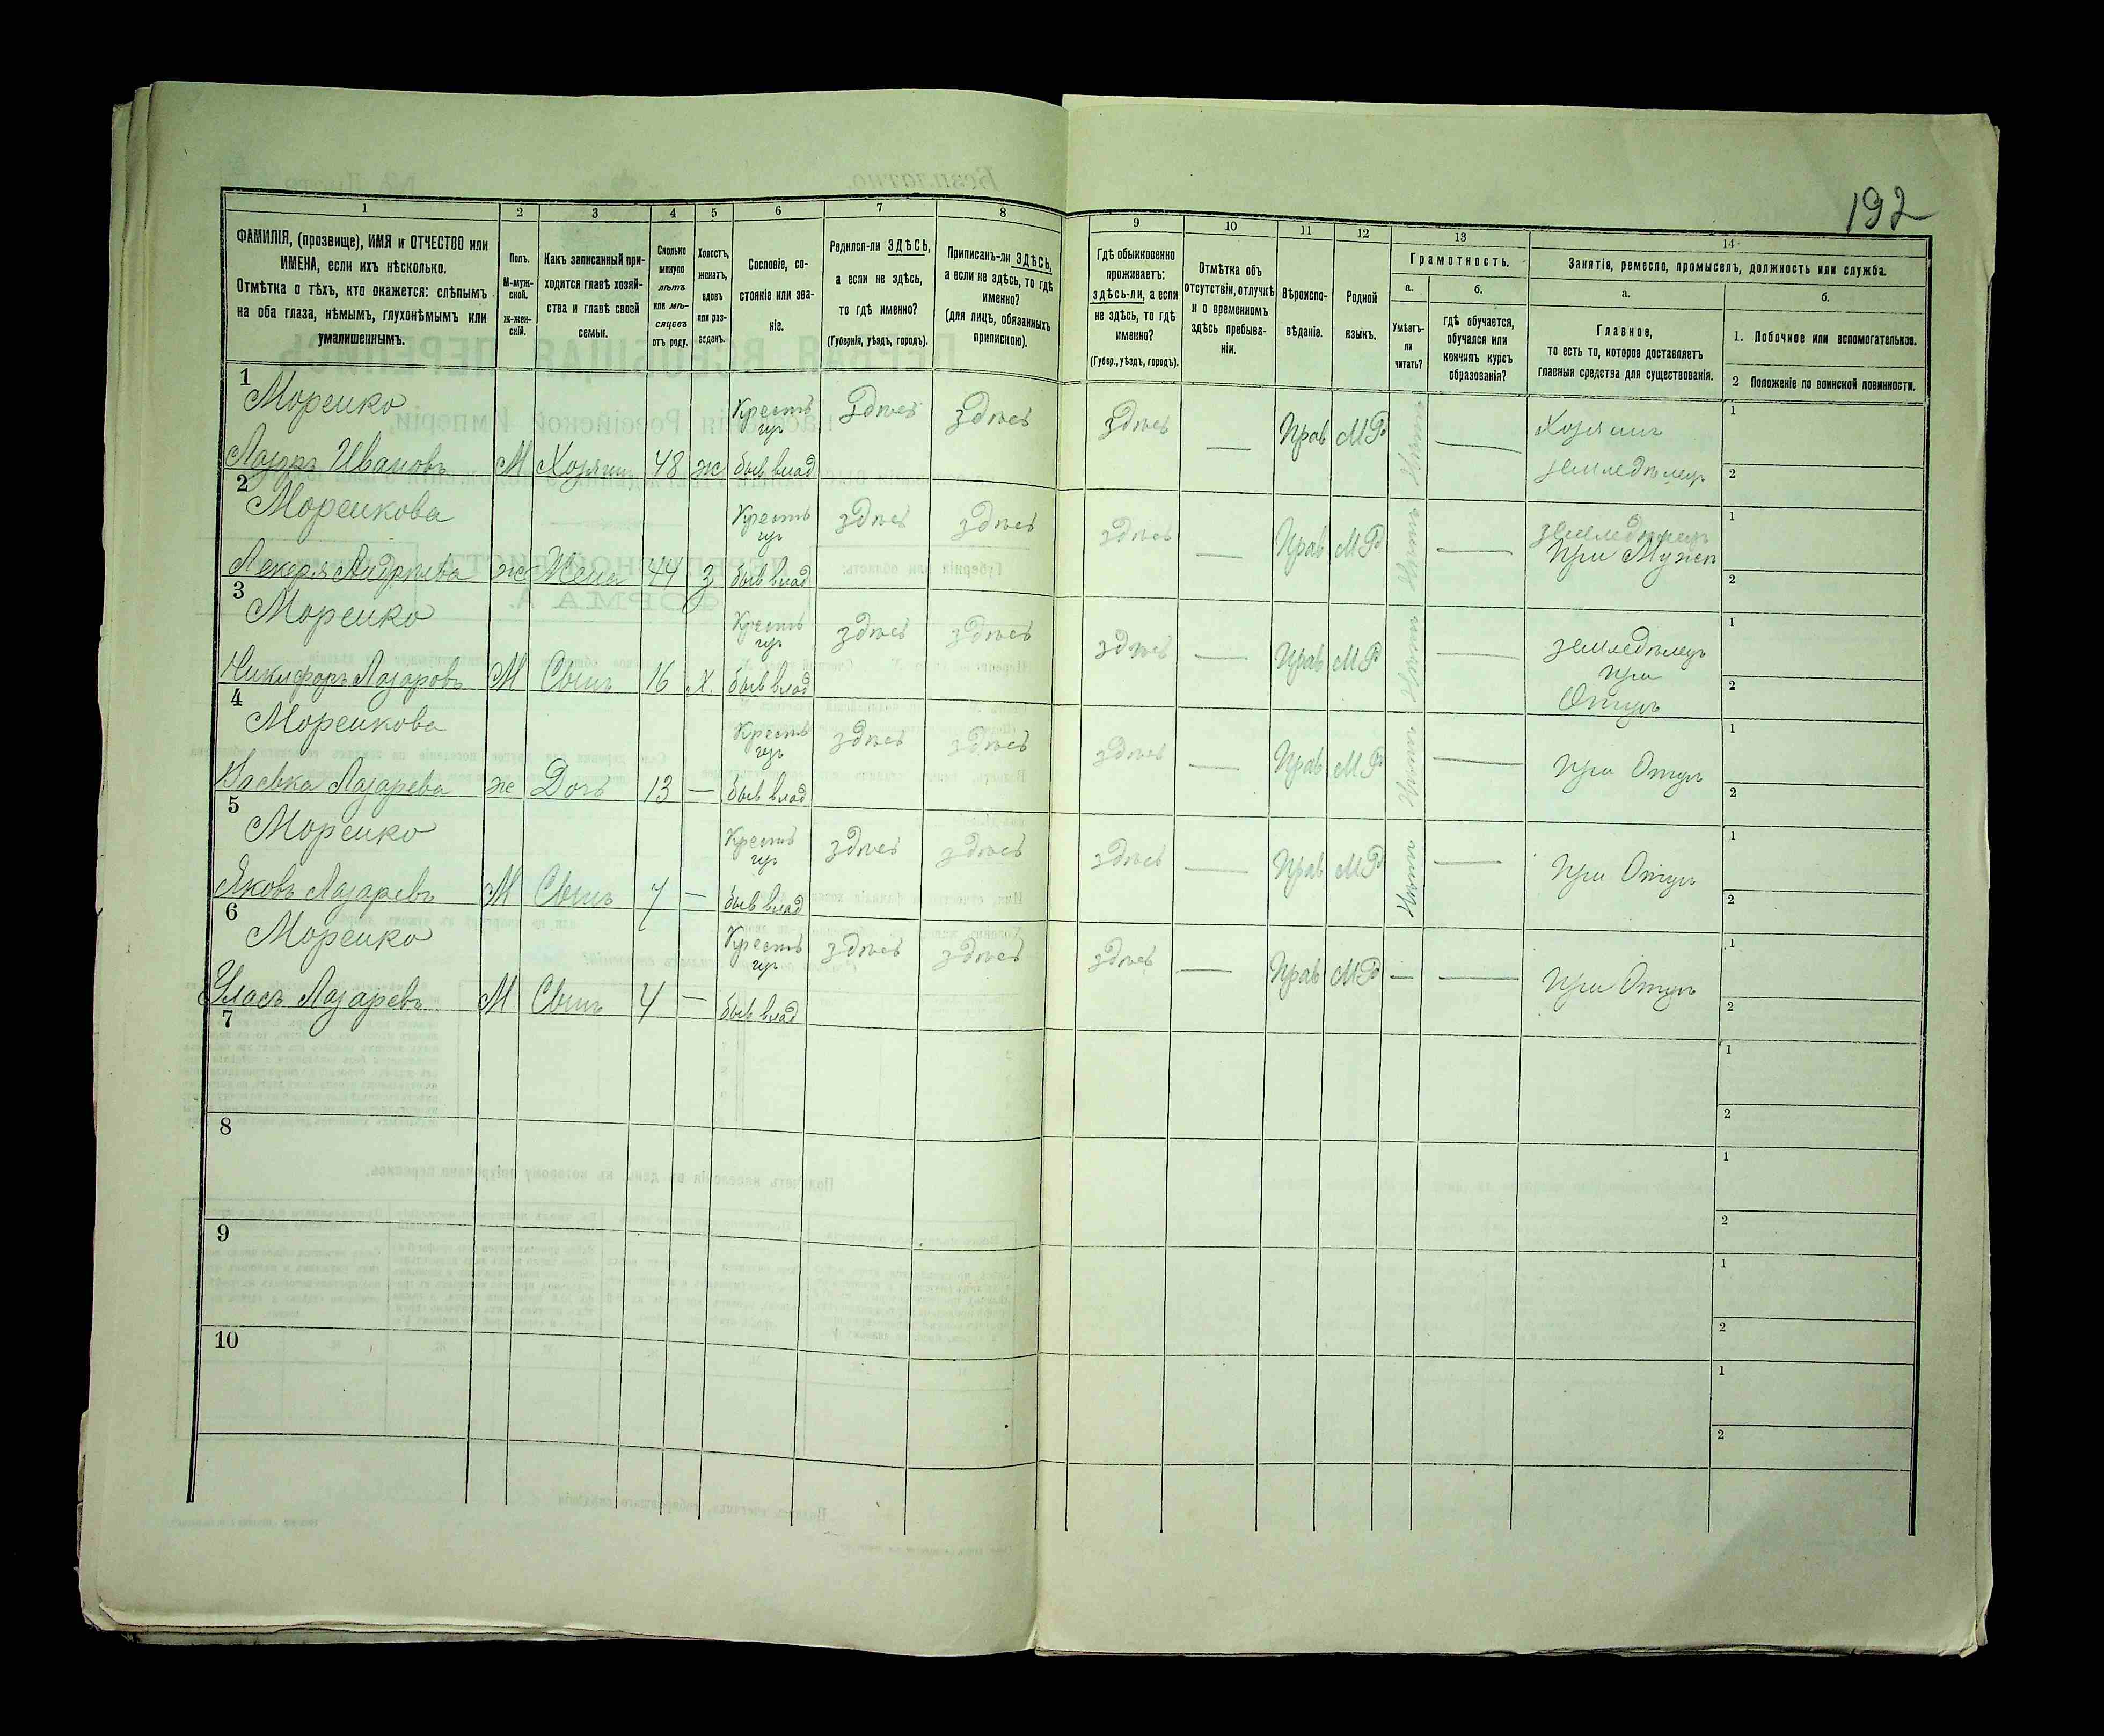 192
1 2 3 4 5 6 7 8 9 10 11 12 13 14
ФАМИЛІЯ, (прозвище), ИМЯ и ОТЧЕСТВО или ИМЕНА, если ихъ нѣсколько.
Отмѣтка о тѣхъ, кто окажется: слѣпымъ на оба глаза, нѣмымъ, глухонѣмымъ или умалишеннымъ.
Полъ.
М-мужской.
ж-женскій.
Какъ записанный приходится главѣ хозяйства и главѣ своей семьи.
Сколько минуло лѣтъ или мѣсяцевъ отъ роду.
Холостъ, женатъ, вдовъ или разведенъ.
Сословіе, состояніе или званіе.
Родился-ли ЗДѢСЬ, а если не здѣсь, то гдѣ именно?
(Губернія, уѣздъ, городъ).
Приписанъ-ли ЗДѢСЬ, а если не здѣсь, то гдѣ именно?
(для лицъ, обязанныхъ припискою).
Гдѣ обыкновенно проживаетъ: здѣсь-ли, а если не здѣсь, то гдѣ именно?
(Губер., уѣздъ, городъ).
Отмѣтка объ отсутствіи, отлучкѣ и о временномъ здѣсь пребываніи.
Вѣроисповѣданіе.
Родной языкъ.
Грамотность.
а.
Умѣетъ-ли читать?
б.
гдѣ обучается, обучался или кончилъ курсъ образованія?
Занятія, ремесло, промыселъ, должность или служба.
а.
Главное,
то есть то, которое доставляетъ главныя средства для существованія.
б.
1. Побочное или вспомогательное.
2 Положеніе по воинской повинности.
1
Моренко Крестъ здѣсь здѣсь здѣсь — Прав МР — Хозяинъ 1
Лазарь Ивановъ М Хозяин 48 ж быв влад земледѣлец 2
2
Моренкова Крестъ здѣсь здѣсь здѣсь — Прав МР — земледѣлец 1
Андрѣева ж Жена 44 з быв влад при Мужѣ 2
3
Моренко Крестъ здѣсь здѣсь здѣсь — Прав МР — земледѣлецъ 1
Никифоръ Лазаровъ М Сынъ 16 х. быв влад при Отцѣ 2
4
Моренкова Крестъ здѣсь здѣсь здѣсь — Прав МР — при Отцѣ 1
Лазарева ж Дочь 13 — быв влад 2
5
Моренко Крестъ здѣсь здѣсь здѣсь — Прав МР — при Отцѣ 1
Яковъ Лазаревъ М Сынъ 7 — быв влад 2
6
Моренко Крестъ здѣсь здѣсь здѣсь — Прав МР — — при Отцѣ 1
Уласъ Лазаревъ М Сынъ 4 — быв влад 2
7 1
2
8 1
2
9 1
2
10 1
2